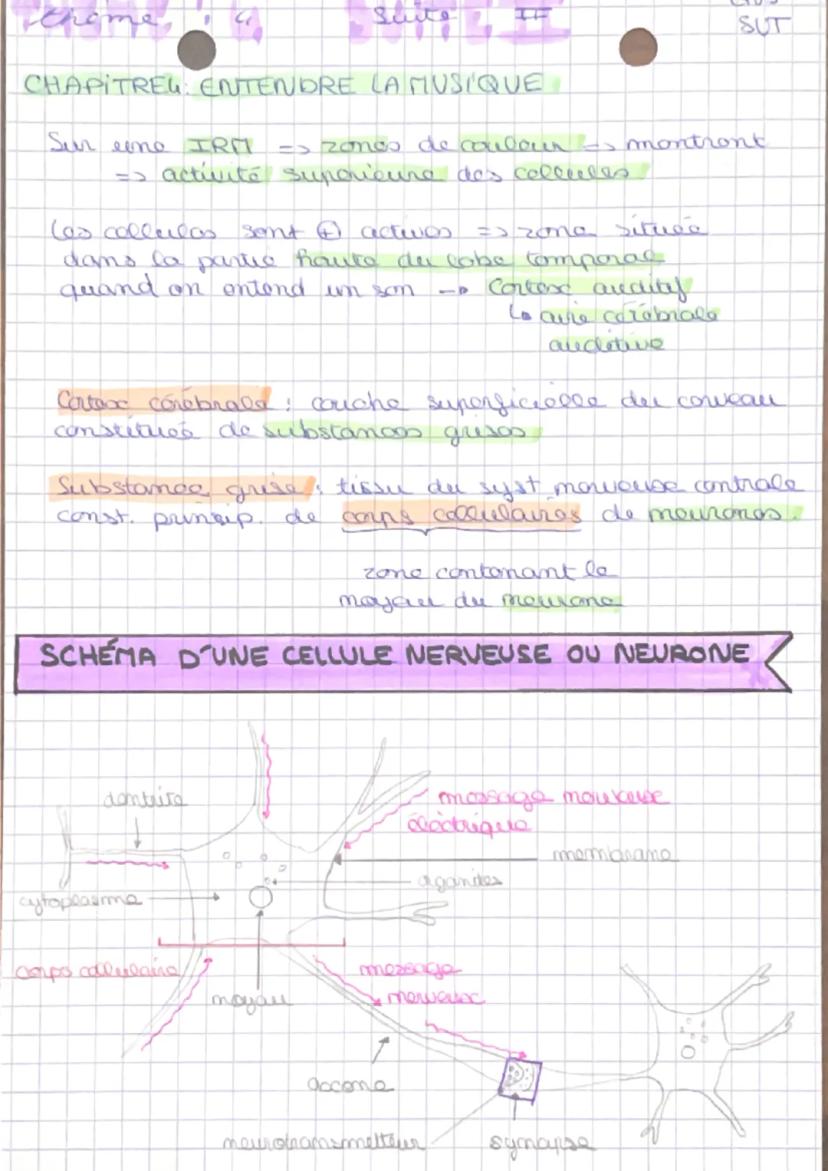 thème : 4 Suite II
SVT
CHAPITRE 4 : ENTENDRE LA MUSIQUE
Sur une IRM => zones de couleur => montront
=> activité supérieure des cellules
Les cellules sont ⊕ actives => zone située
dans la partie haute du lobe temporal
quand on entend un son → Cortex auditif
↳ aire cérébrale
auditive
Cortex cérébrale : couche superficielle du cerveau
constituée de substances grises
Substance grise : tissu du syst nerveuse centrale
const. princip. de corps cellulaires de neurones.
zone contenant le
noyau du neurone
SCHÉMA D'UNE CELLULE NERVEUSE OU NEURONE
dentrite
message nerveuse
électrique
membrane
organites
cytoplasme
corps cellulaire
message
nerveux
noyau
axone
neurotransmetteur
synapse